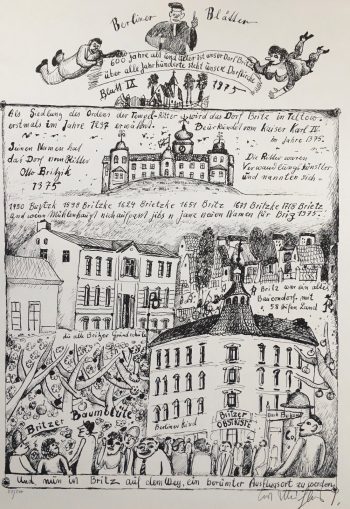 Berliner Blätter
600 Jahre alt und älter ist unser Dorf Britz
über alle Jahrhunderte steht unsere Dorfkirche
Blatt IX 1975
Als Siedlung des Ordens der Tempel-Ritter wird das Dorf Britz in Teltow
erstmals im Jahre 1237 erwähnt. Beurkundet vom Kaiser Karl IV.
im Jahre 1375.
Seinen Namen hat
das Dorf vom Ritter
Otto
1375
Die Ritter waren
Verwandlungskünstler
und nannten sich -
1450 1598 Britzke 1624 Brietzke 1651 Britz 1671 Britzke 1775 Britz
und wenn nich aufpasst jibs n janz neien Namen für Briz 1975.
Britz war ein altes
Bauerndorf mit
58 Hufen Land
die alte Britzer Grundschule
Britzer Baumblüte
Berliner Kind
Britzer
OBSTKISTE
Und nun ist Britz auf dem Weg, ein berümter Ausflugsort zu werden